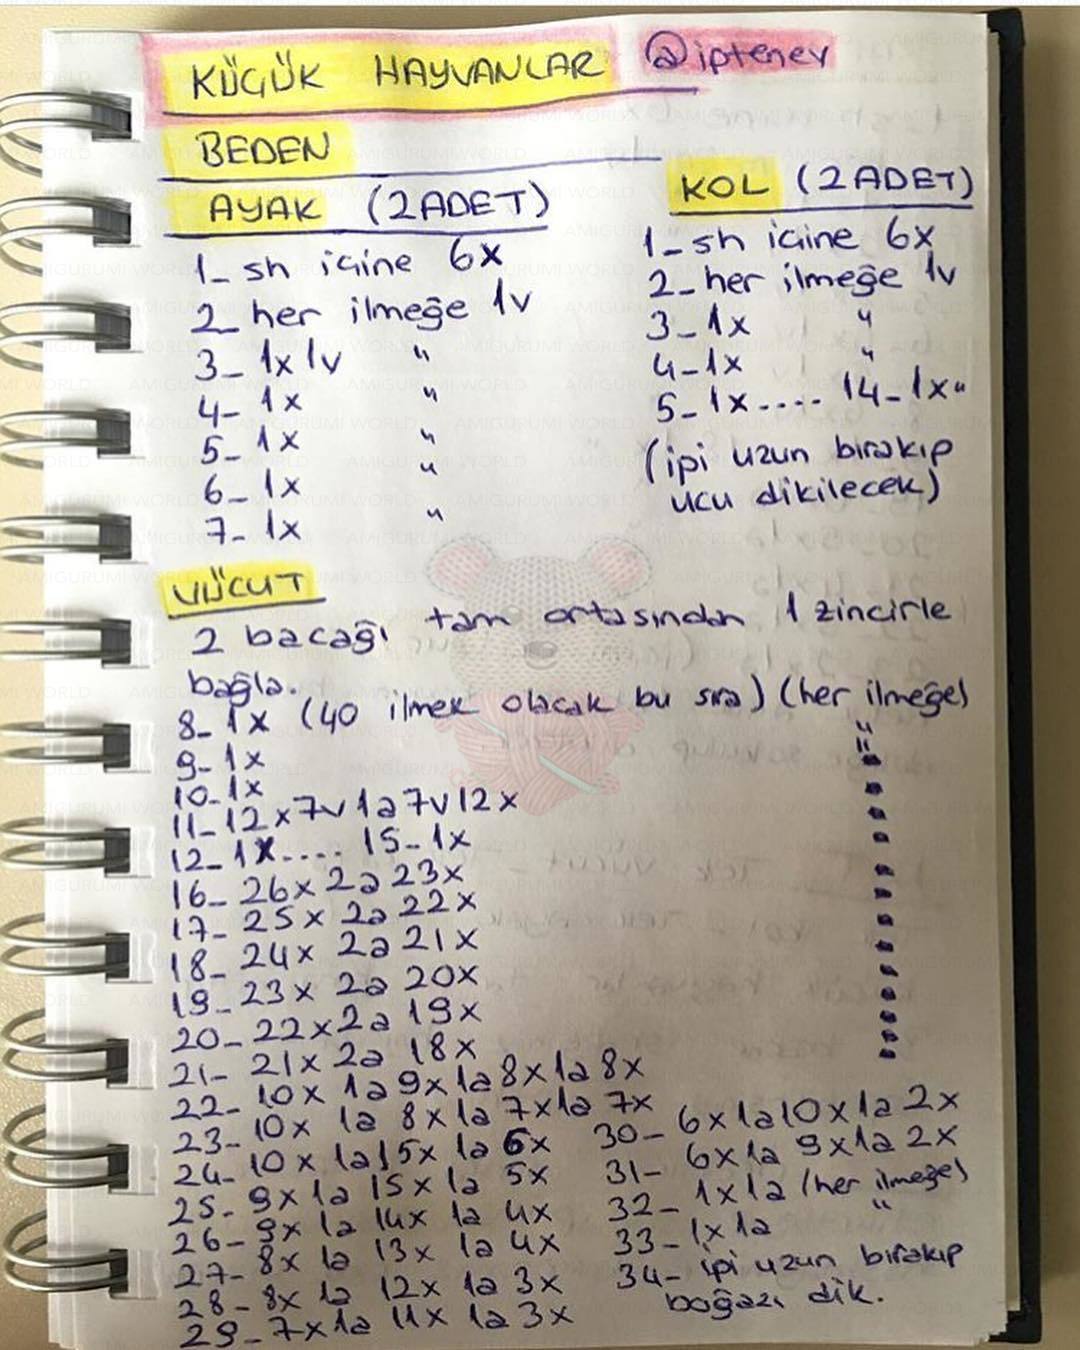 KÜÇÜK HAYVANLAR @iptenev
BEDEN
AYAK (2 ADET)
1_ sh içine 6x
2_ her ilmeğe 1v
3_ 1x 1v "
4- 1x "
5_ 1x "
6_ 1x "
7- 1x "
KOL (2 ADET)
1_ sh içine 6x
2_ her ilmeğe 1v
3_ 1x "
4_ 1x "
5_ 1x .... 14_ 1x "
(ipi uzun bırakıp
ucu dikilecek)
VÜCUT
2 bacağı tam ortasından 1 zincirle
bağla.
8_ 1x (40 ilmek olacak bu sıra) (her ilmeğe)
9_ 1x "
10_ 1x "
11_ 12x 7v 1a 7v 12x
12_ 1x .... 15_ 1x
16_ 26x 2a 23x
17_ 25x 2a 22x
18_ 24x 2a 21x
19_ 23x 2a 20x
20_ 22x 2a 19x
21_ 21x 2a 18x
22_ 10x 1a 9x 1a 8x 1a 8x
23_ 10x 1a 8x 1a 7x 1a 7x
24_ 10x 1a 15x 1a 6x
25_ 9x 1a 15x 1a 5x
26_ 9x 1a 14x 1a 4x
27_ 8x 1a 13x 1a 4x
28_ 8x 1a 12x 1a 3x
29_ 7x 1a 11x 1a 3x
30_ 6x 1a 10x 1a 2x
31_ 6x 1a 9x 1a 2x
32_ 1x 1a (her ilmeğe)
33_ 1x 1a "
34_ ipi uzun bırakıp
boğazı dik.
AMIGURUMI WORLD